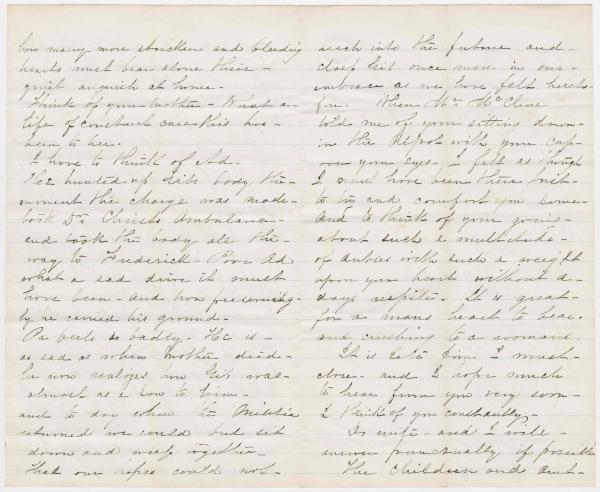 how many more stricken and bleeding
hearts must bear alone their
quiet anguish at home.
Think of your mother - What a
life of constant care this has
been to her.
I love to think of Ad.
He hunted up Gib's body the
moment the charge was made -
took Dr Christs Ambulance -
and took the body all the
way to Frederick - Poor Ad
what a sad drive it must
have been - and how persevering-
ly he carried his ground.
Pa feels so badly - He is -
as sad as when Mother died -
he now realizes how Gib was
almost as a son to him -
and to day when the Militia
returned we could but sit
down and weep together -
That our repes could not -
reach into the future and -
clasp Gib once more in our
embrace as we have felt hereto-
fore. When Mrs McClure
told me of your sitting down
in the Depot with your cap
over your eyes - I felt as though
I must have been there just
to try and comfort you some -
And to think of your going
about such a multitude -
of duties with such a weight
upon your heart without a
days respite. It is great -
for a mans heart to bear
and crushing to a womans.
It is late time I must
close - and I hope much
to hear from you very soon -
I think of you constantly -
Do write - and I will -
answer punctually if possible
The children and Aunt